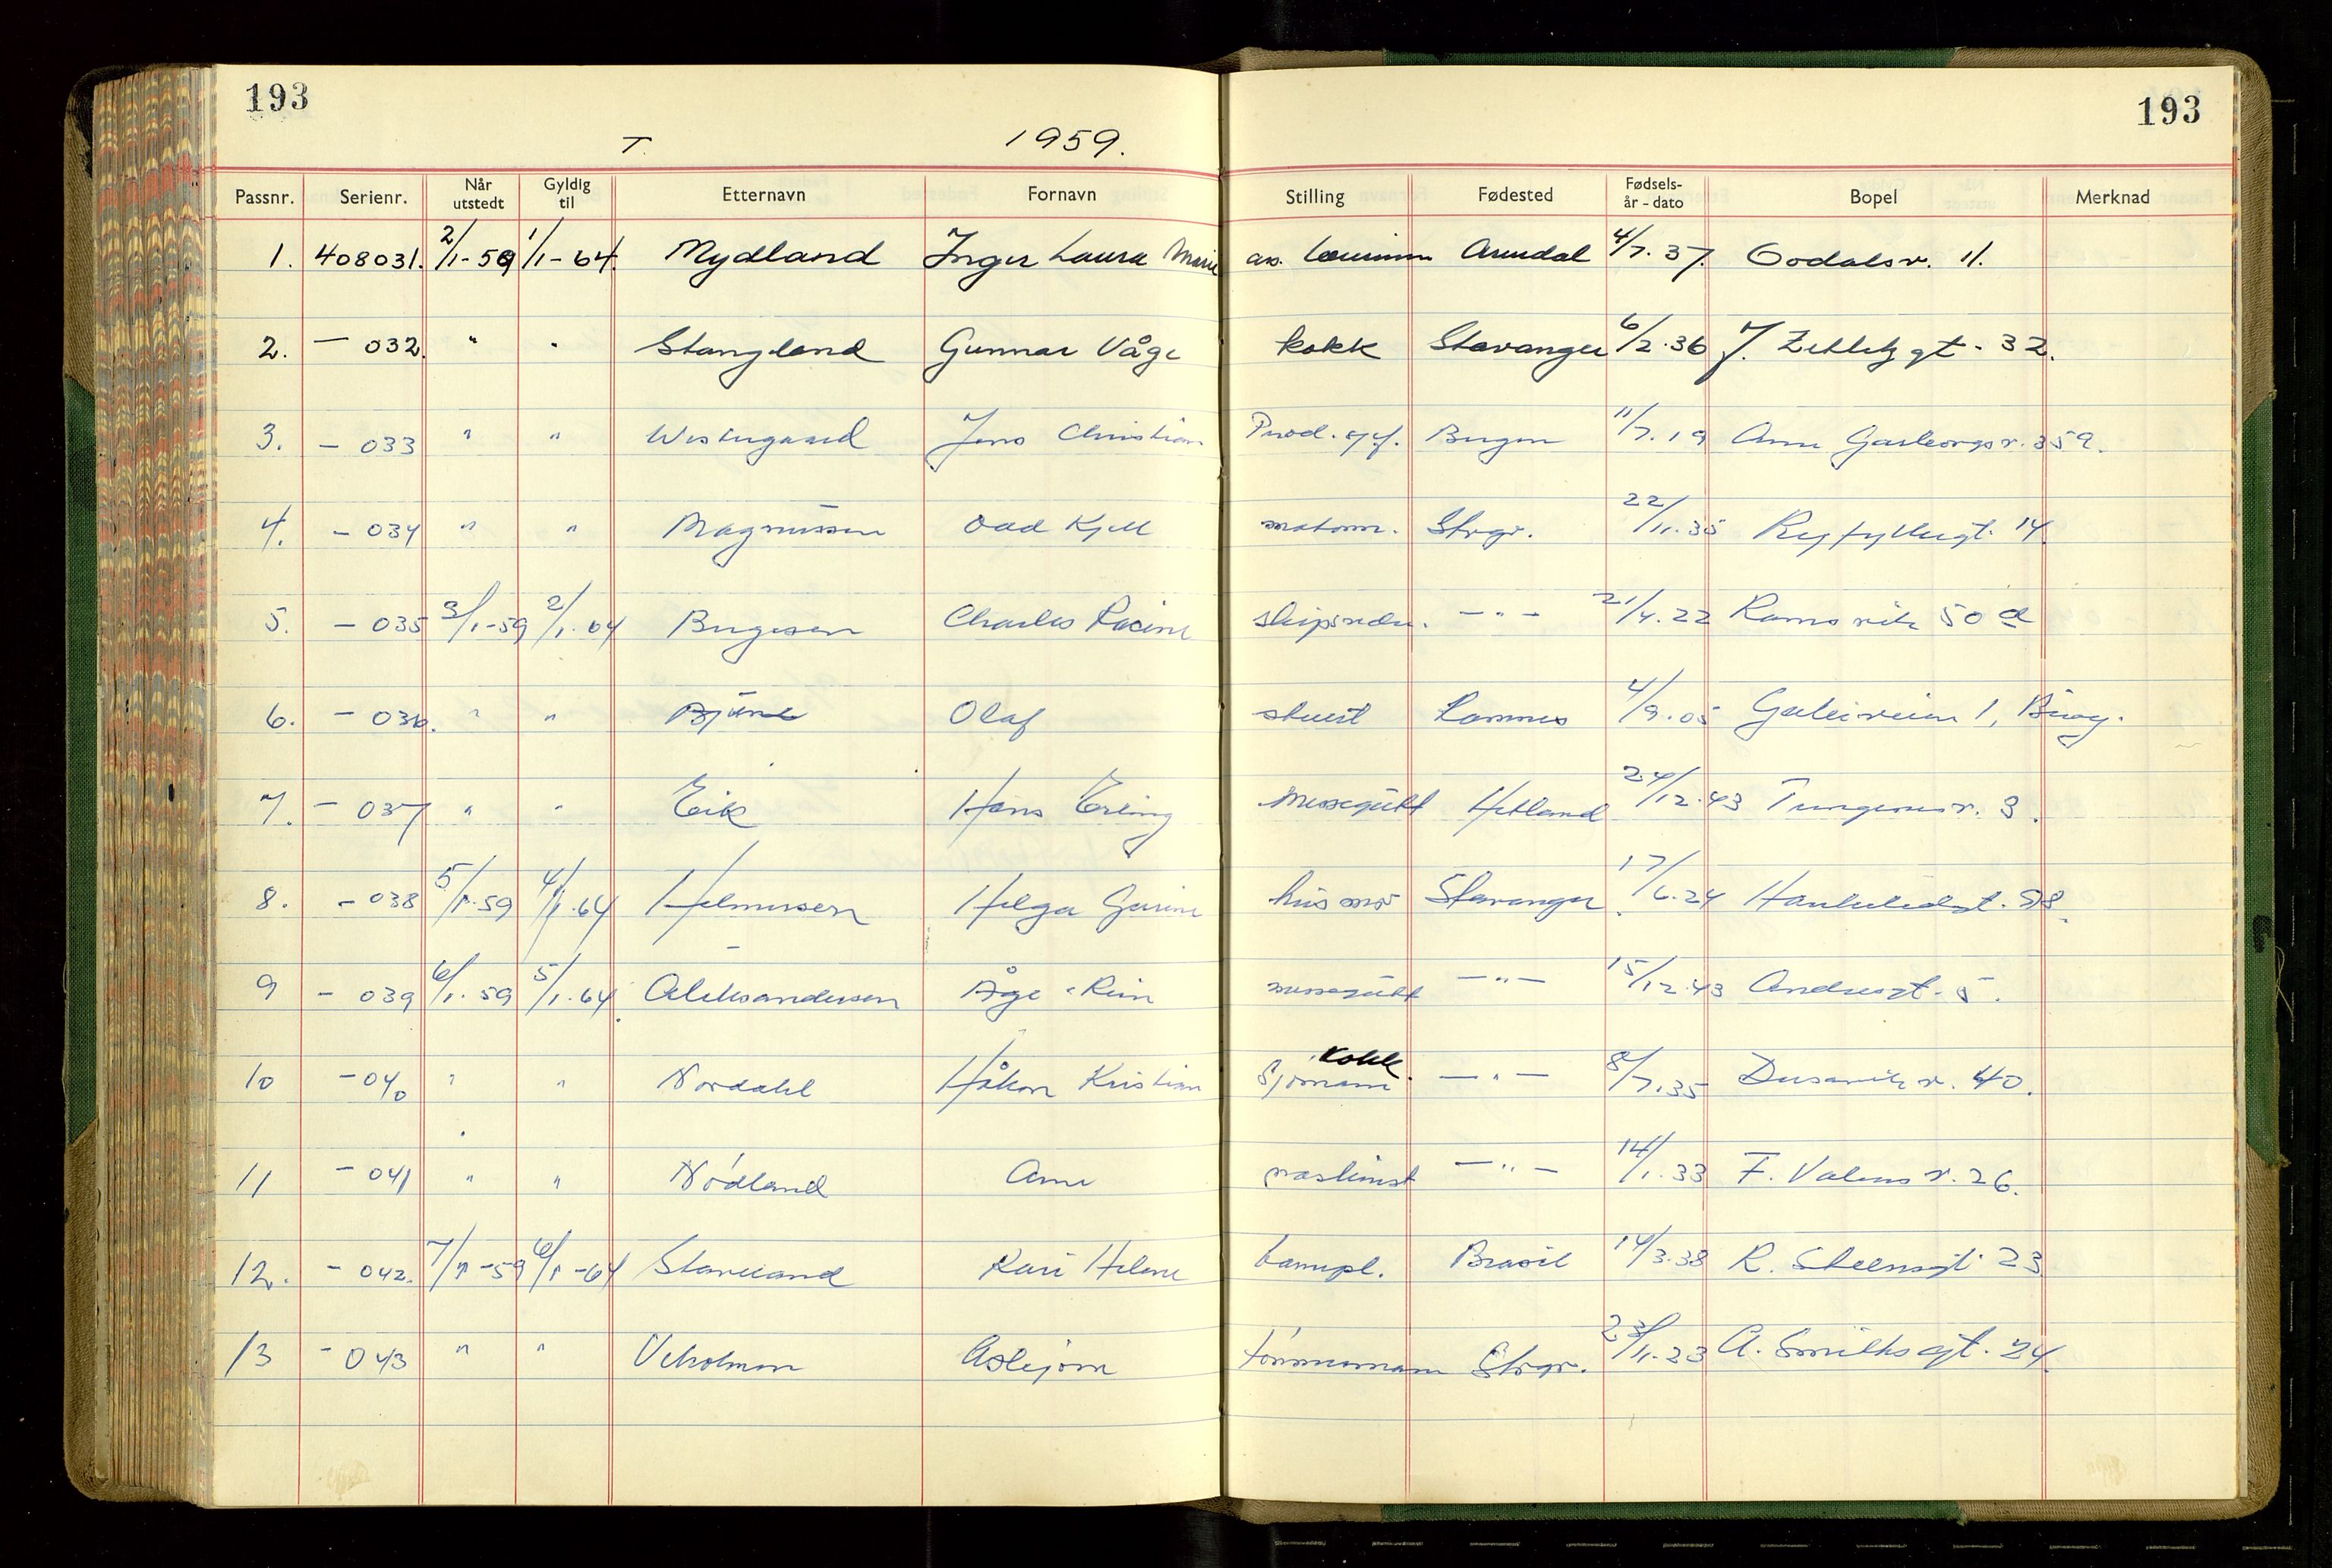 193 193
T. 1959.
Passnr. Serienr. Når utstedt Gyldig til Etternavn Fornavn Stilling Fødested Fødsels- år - dato Bopel Merknad
1. 408031. 2/1-59 1/1-64. Mydland Inger Laura Marie ass. Arendal 4/7.37. Godalsv. 11.
2. — 032. " " Stangland Gunnar Våge kokk Stavanger 6/2.36 J. Zetlitzgt. 32.
3. — 033 " " Westergaard Jens Christian Prod. Bergen 11/7.19 Arne Garborgsv. 359.
4. — 034 " " Magnussen Odd Kjell matorm. Stvgr. 22/11.35 Ryfylkegt. 14.
5. — 035 3/1-59 2/1.64 Bergesen Charles Racine skipsreder. — " — 21/4.22 Ramsvik 50 a
6. — 036. " " Olaf stuert 4/9.05 1,
7. — 037 " " Eik Hans Erling messegutt Hetland 24/12.43 Tungenesv. 3.
8. — 038 5/1.59 4/1.64 Helmersen Helga husmor Stavanger 17/6.24 Haukeligt.
9 — 039 6/1.59 5/1.64 Aleksandersen Åge Rein messegutt — " — 15/12.43 Andresgt. 5.
10 — 040 " " Nordahl Håkon Kristian Sjømann kokk. — " — 8/7.35 Dusavikv. 40.
11 — 041 " " Nødland Arne maskinist — " — 14/1.33 F. Valensv. 26.
12. — 042. 7/1-59 6/1-64 Stavland Kari Helene Brasil 14/3.38 R. Steensgt 23
13 — 043 " " Vetrhus Asbjørn tømmermann Stvgr. 23/11.23 A. Smithsgt. 24.